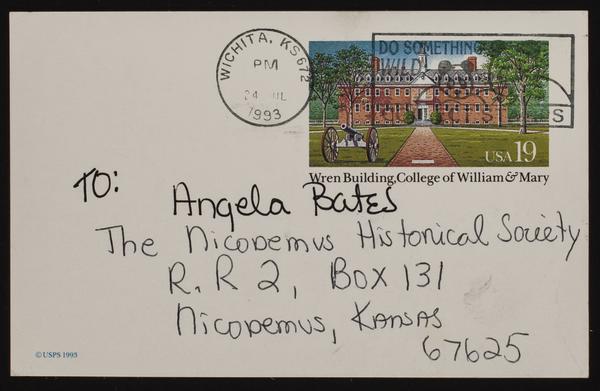 WICHITA, KS 672
PM
24 JUL
1993
DO SOMETHING
WILD
USA 19
Wren Building, College of William & Mary
TO:
Angela Bates
The Nicodemus Historical Society
R.R 2, Box 131
Nicodemus, Kansas
67625
© USPS 1993